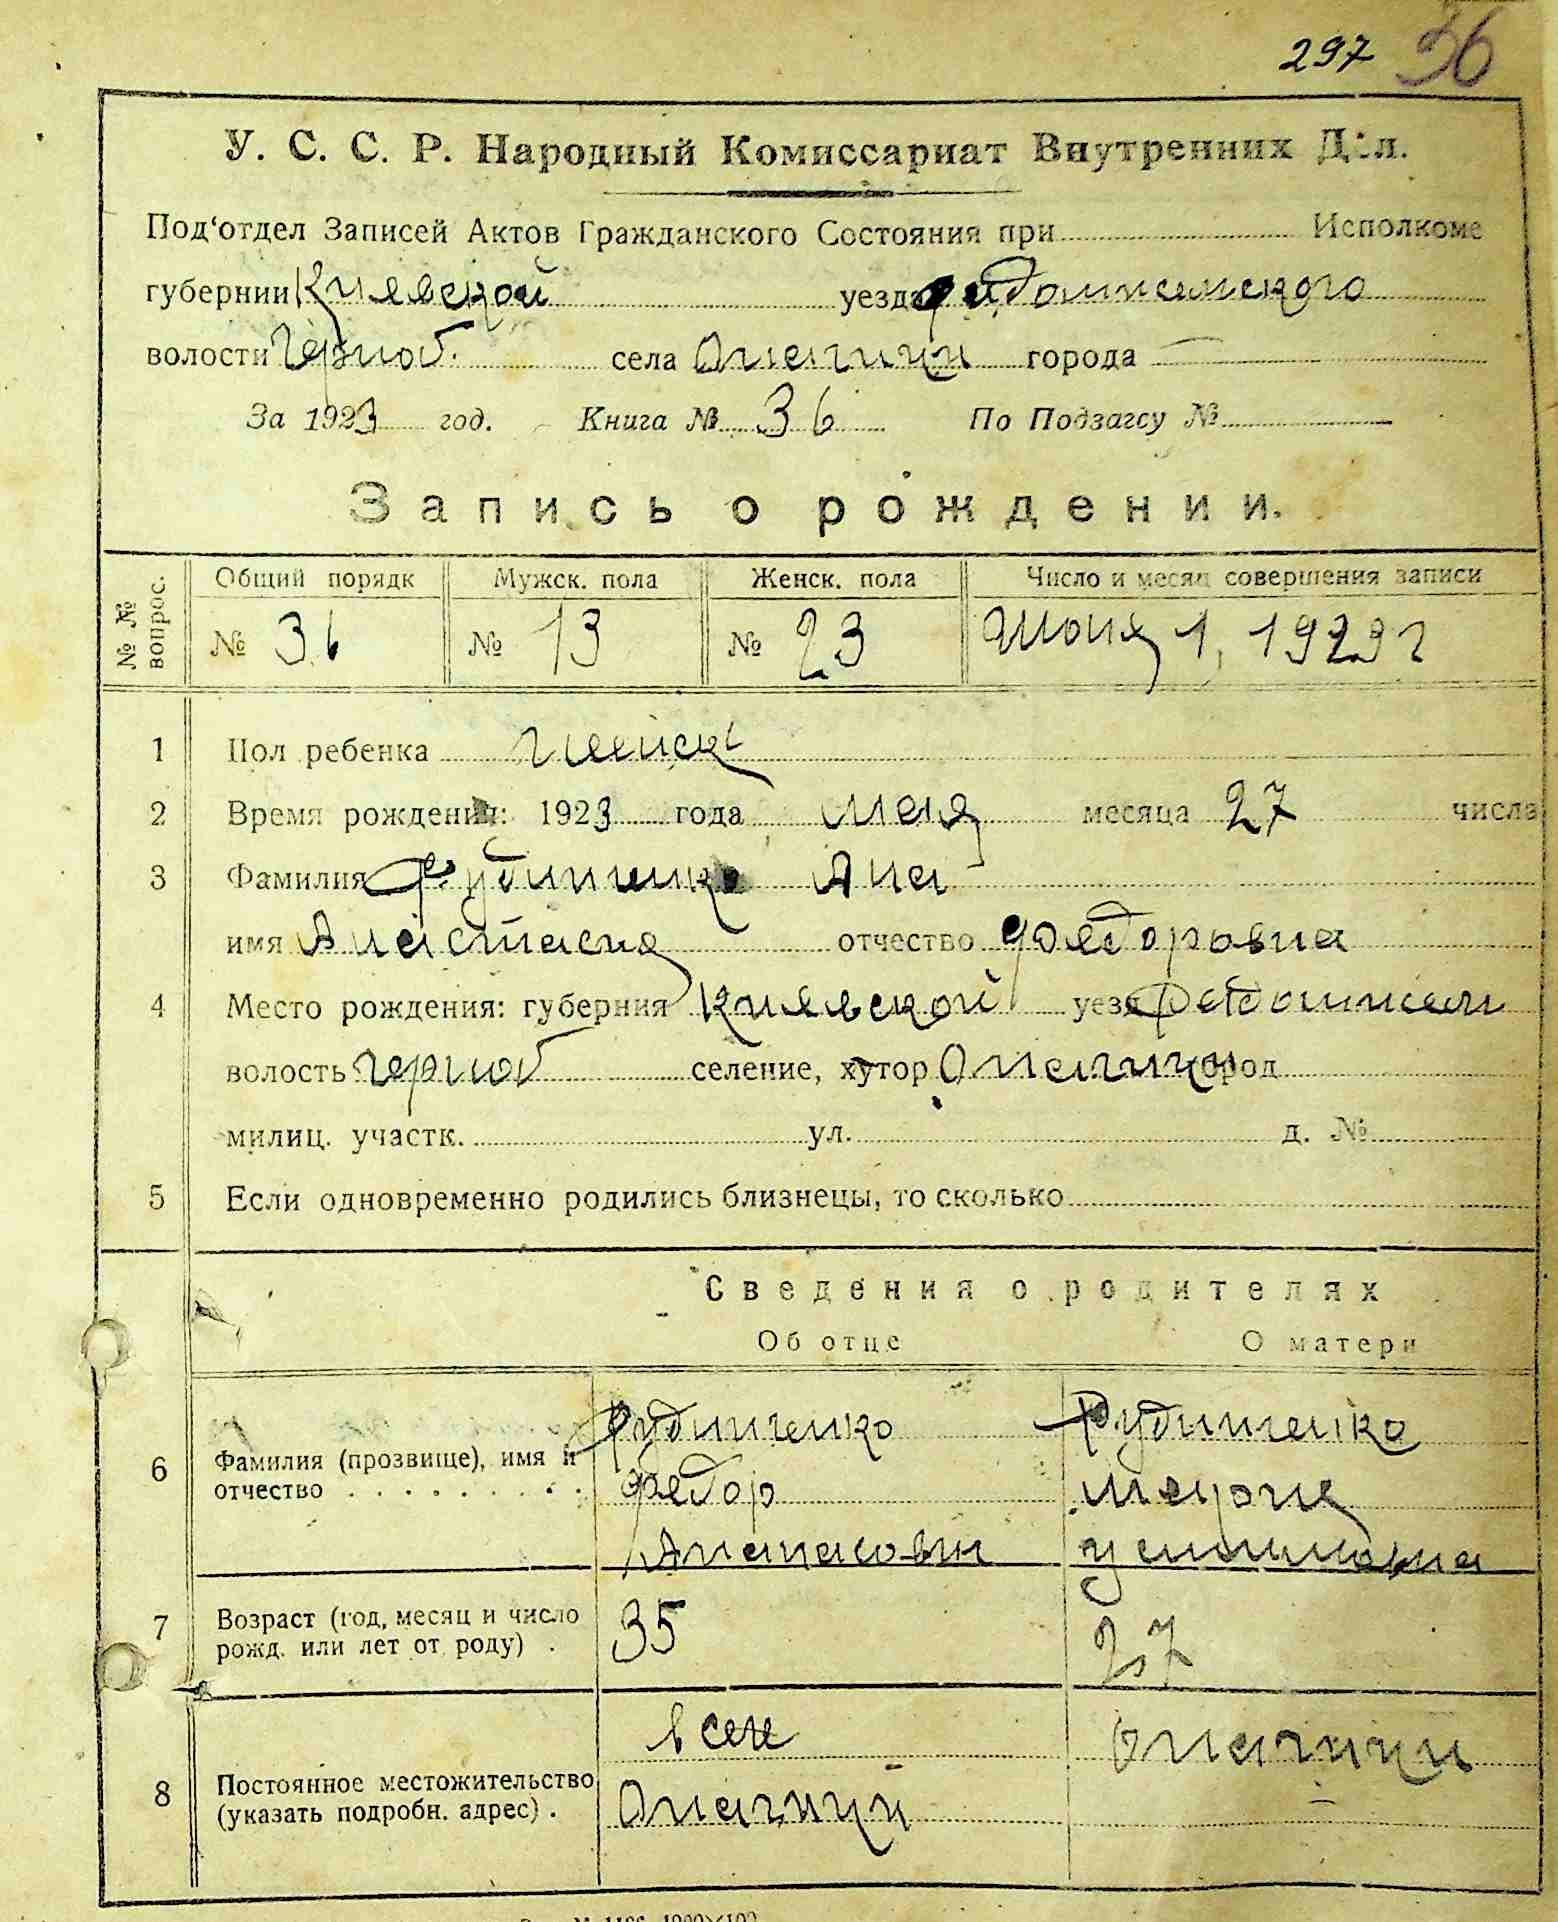 297 36
У. С. С. Р. Народный Комиссариат Внутренних Дѣл.
Под'отдел Записей Актов Гражданского Состояния при Исполкоме
губернии Киевской уезда Радомисмского
волости Черноб. села Опачичи города —
За 1923 год. Книга № 36 По Подзагсу №
Запись о рождении.
№№ вопрос. Общий порядк Мужск. пола Женск. пола Число и месяц совершения записи
№ 36 № 13 № 23 Июня 1, 1923 г
1 Пол ребенка женск
2 Время рождения: 1923 года мая месяца 27 числа
3 Фамилия Рудниченко Ана
имя Анастасия отчество Федоровна
4 Место рождения: губерния Киевской уезд Радомисм
волость Черноб селение, хутор Опачичи город
милиц. участк. ул. д. №
5 Если одновременно родились близнецы, то сколько
Сведения о родителях
Об отце О матери
6 Фамилия (прозвище), имя и отчество Рудниченко Рудниченко
Федор Мария
Анапасови
7 Возраст (год, месяц и число рожд. или лет от роду) . 35 27
8 Постоянное местожительство (указать подробн. адрес) . в селе Опачичи
Опачичи